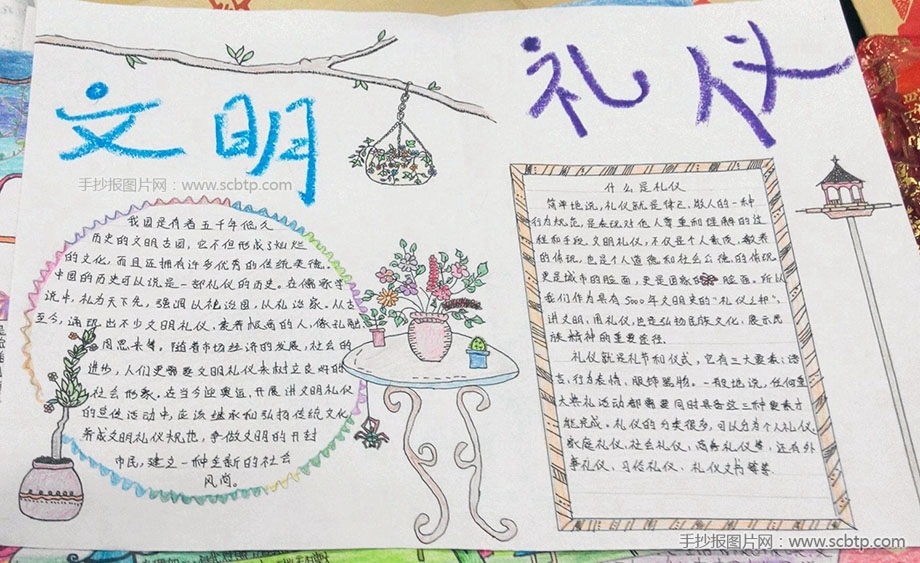 文明
礼仪
手抄报图片网：www.scbtp.com
我国是有着五千年悠久
历史的文明古国，它不但形成了灿烂
的文化，而且还拥有许多优秀的传统美德。
中国的历史可以说是一部礼仪的历史。在儒家学
说中，礼为天下先，强调以德治国，以礼治家。从古
至今，涌现出不少文明礼仪，素养极高的人，像孔融
周恩来等。随着市场经济的发展，社会的
进步，人们更需要文明礼仪来树立良好的
社会形象。在当今迎奥运，开展讲文明礼仪
的宣传活动中，应该继承和弘扬传统文化，
养成文明礼仪规范，争做文明的开封
市民，建立一种全新的社会
风尚。
什么是礼仪
简单地说，礼仪就是律已、敬人的一种
行为规范，是表现对他人尊重和理解的过
程和手段。文明礼仪，不仅是个人素质、教养
的体现，也是个人道德和社会公德的体现，
更是城市的脸面，更是国家的脸面。所以
我们作为具有5000年文明史的“礼仪之邦”，
讲文明，用礼仪，也是弘扬民族文化、展示民
族精神的重要途径。
礼仪就是礼节和仪式，它有三大要素：语
言，行为表情、服饰器物。一般地说，任何重
大典礼活动都需要同时具备这三种要素才
能完成。礼仪的分类很多，可以分为个人礼仪、
家庭礼仪、社会礼仪、商务礼仪等，还有外
事礼仪、习俗礼仪、礼仪文书等等。
手抄报图片网：www.scbtp.com